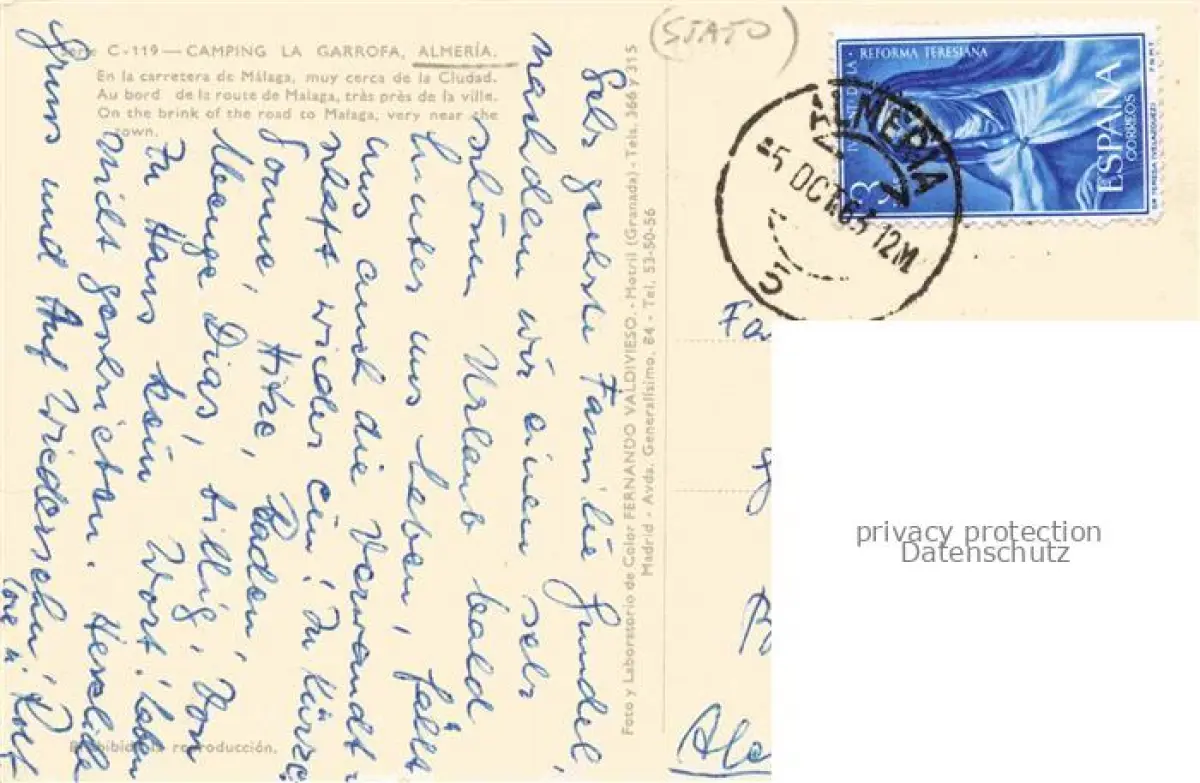 Serie C-119 — CAMPING LA GARROFA, ALMERÍA.
En la carretera de Málaga, muy cerca de la Ciudad.
Au bord de la route de Malaga, très près de la ville.
On the brink of the road to Malaga, very near the
town.
(STATO)
Sehr geehrte Familie Gundel,
nachdem wir einen sehr
schönen Urlaub bald
hinter uns haben, fällt
uns auch die Verwandt-
schaft wieder ein! In Kürze:
Sonne, Hitze, Baden,
Menge Dias, billig, von
zu Haus kein Wort! Leben
nicht Herzliche
Gruss und Auf Wiedersehn!
Rolf
Prohibida la reproducción.
Foto y Laboratorio de Color FERNANDO VALDIVIESO. - Motril (Granada) - Tels. 366 y 315
Madrid - Avda. Generalísimo, 84 - Tel. 53-50-56
REFORMA TERESIANA
3
ESPAÑA
CORREOS
STA TERESA (VELAZQUEZ) F.N.M.T.
ALMERIA
-5 OCT 63 12M
5
privacy protection
Datenschutz